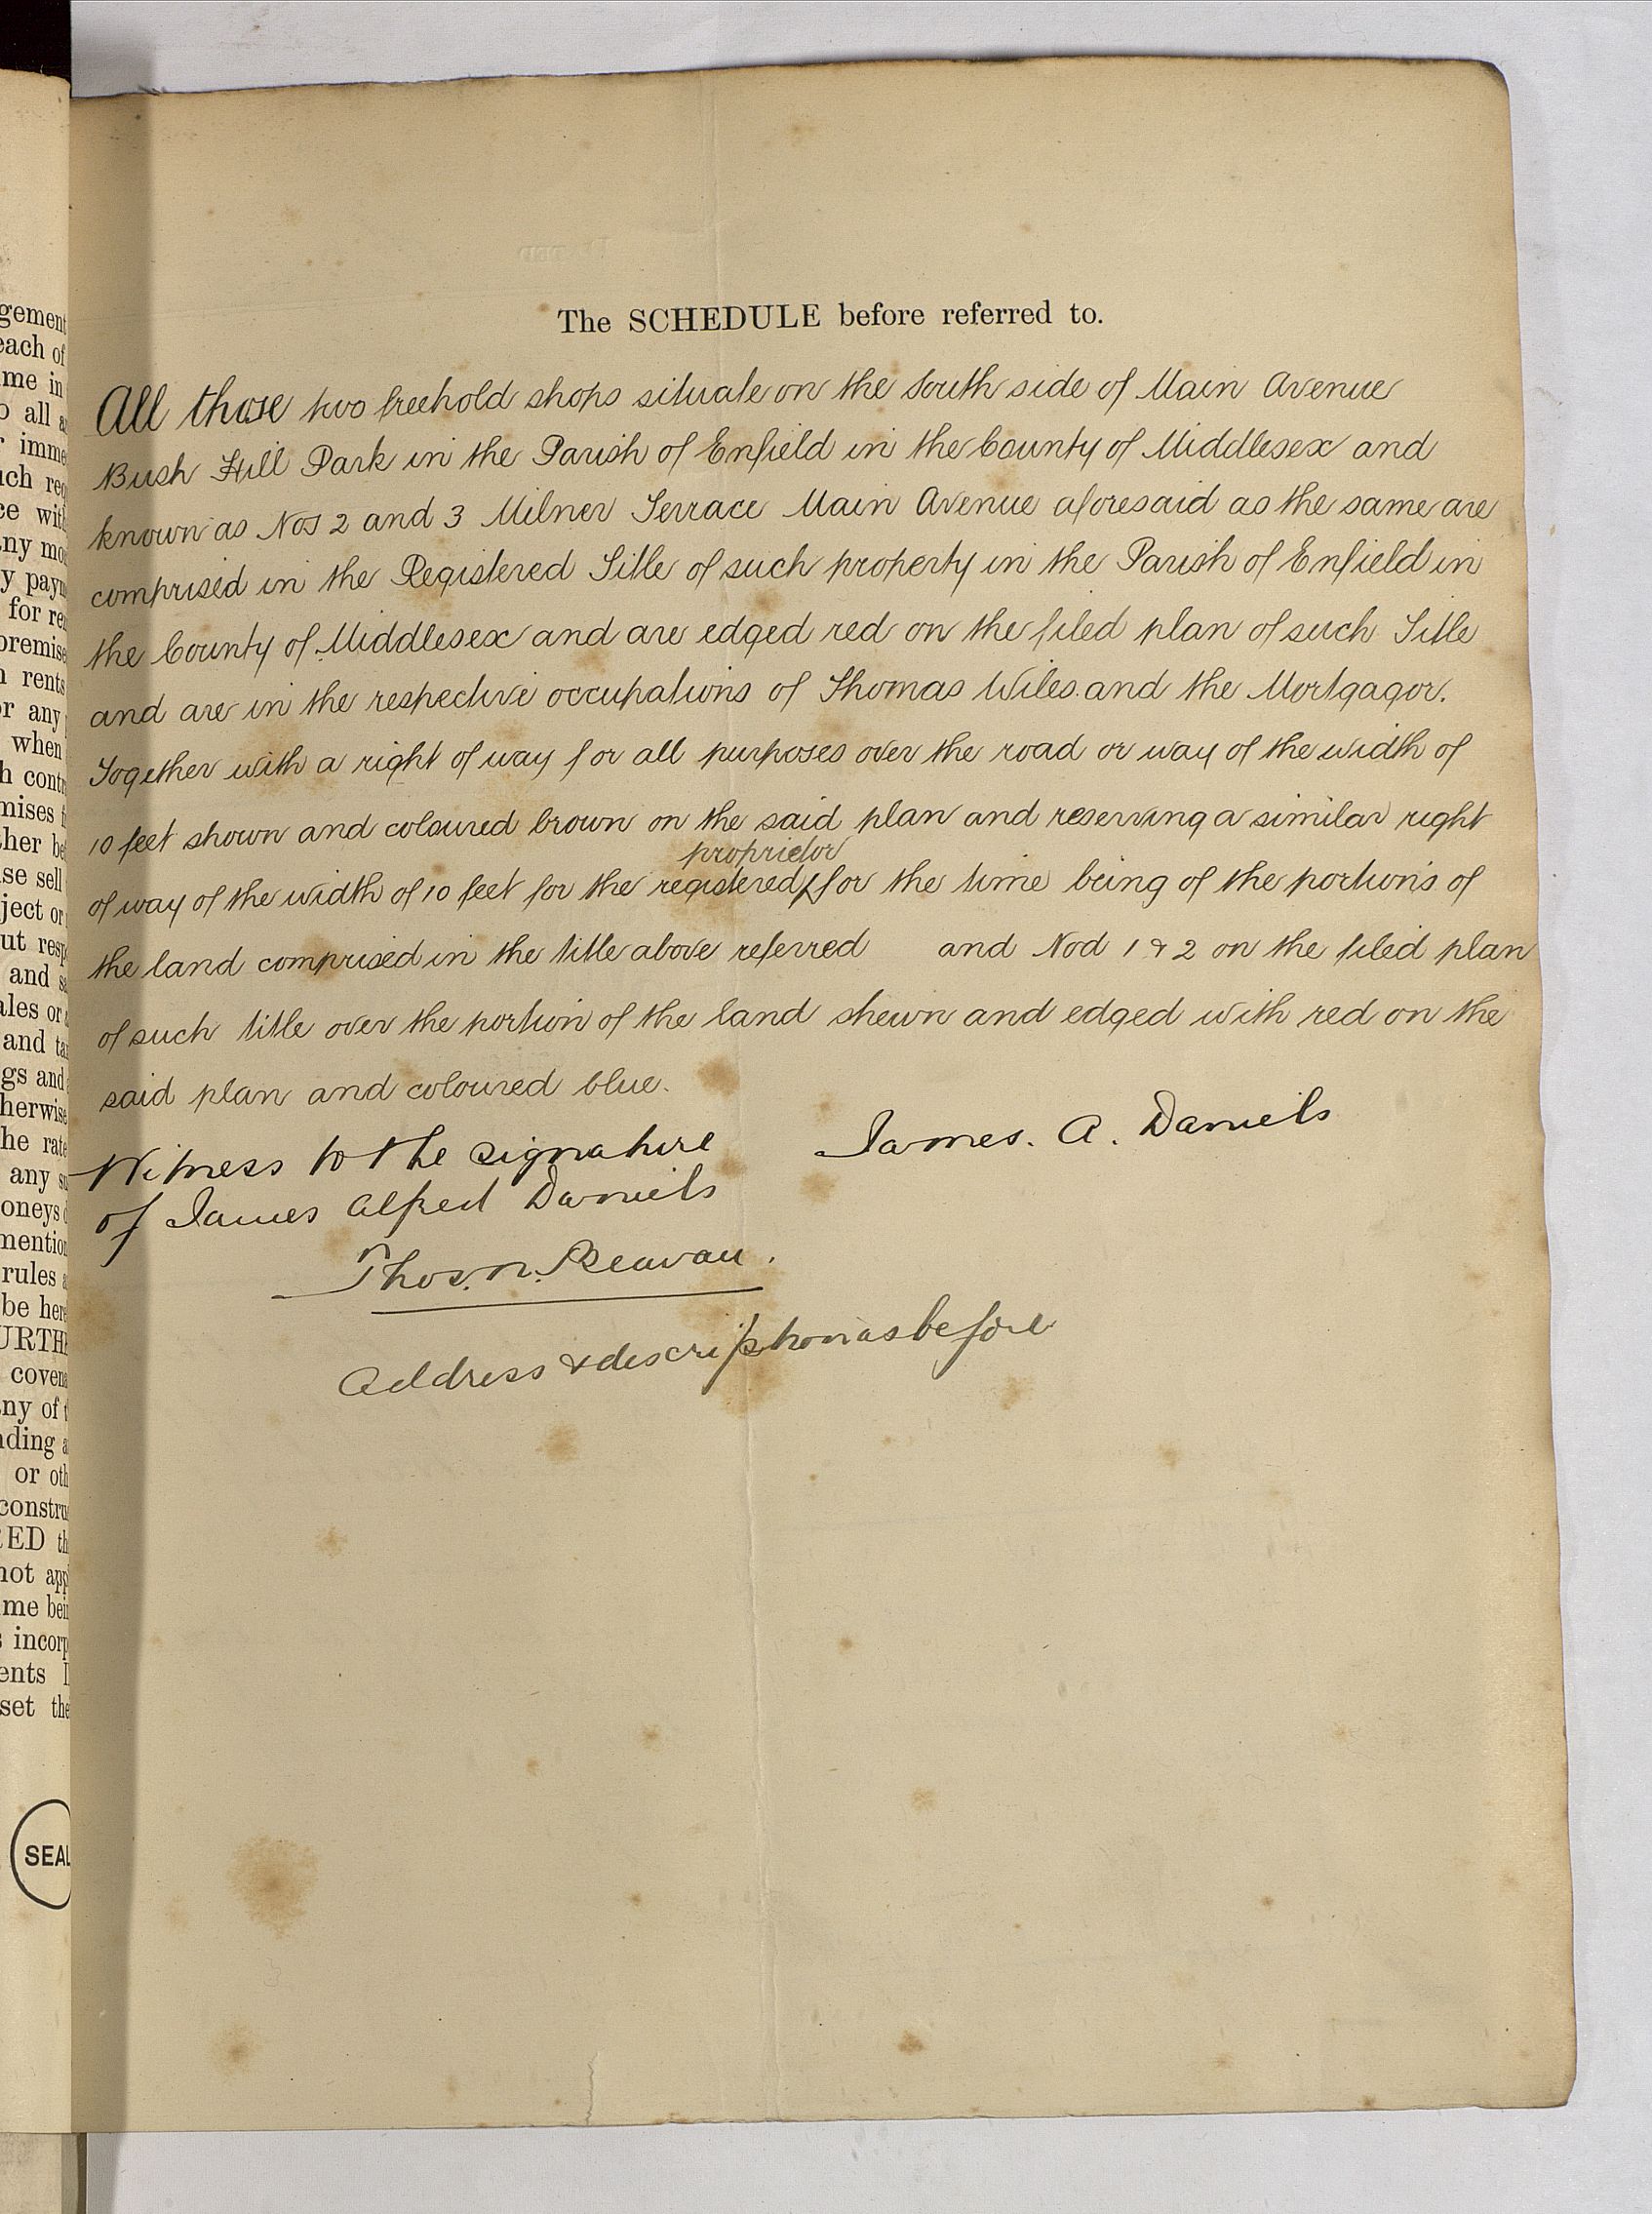 The SCHEDULE before referred to.
All those two freehold shops situate on the South side of Main Avenue
Bush Hill Park in the Parish of Enfield in the County of Middlesex and
known as Nos 2 and 3 Milner Terrace Main Avenue aforesaid as the same are
comprised in the Registered Title of such property in the Parish of Enfield in
the County of Middlesex and are edged red on the filed plan of such Title
and are in the respective occupations of Thomas Wiles and the Mortgagor.
Together with a right of way for all purposes over the road or way of the width of
10 feet shown and coloured brown on the said plan and reserving a similar right
proprietor
of way of the width of 10 feet for the registered for the time being of the portions of
the land comprised in the title above referred and Nod 1 & 2 on the filed plan
of such title over the portion of the land shewn and edged with red on the
said plan and coloured blue.
James. A. Daniels
Witness to the signature
of James Alfred Daniels
Thos. N.
Address & description as before
gement
each of
me in
o all a
r imme
ich req
ce with
ny mo
y paym
for re
premise
n rents
or any
when
h contr
mises
ther be
se sell
ject or
ut resp
and s
ales or
and ta
gs and
herwise
he rate
any su
oneys
mention
rules a
be here
URTHE
covena
ny of t
nding a
or oth
constru
RED th
not app
me bein
s incorp
ents I
set the
SEAL